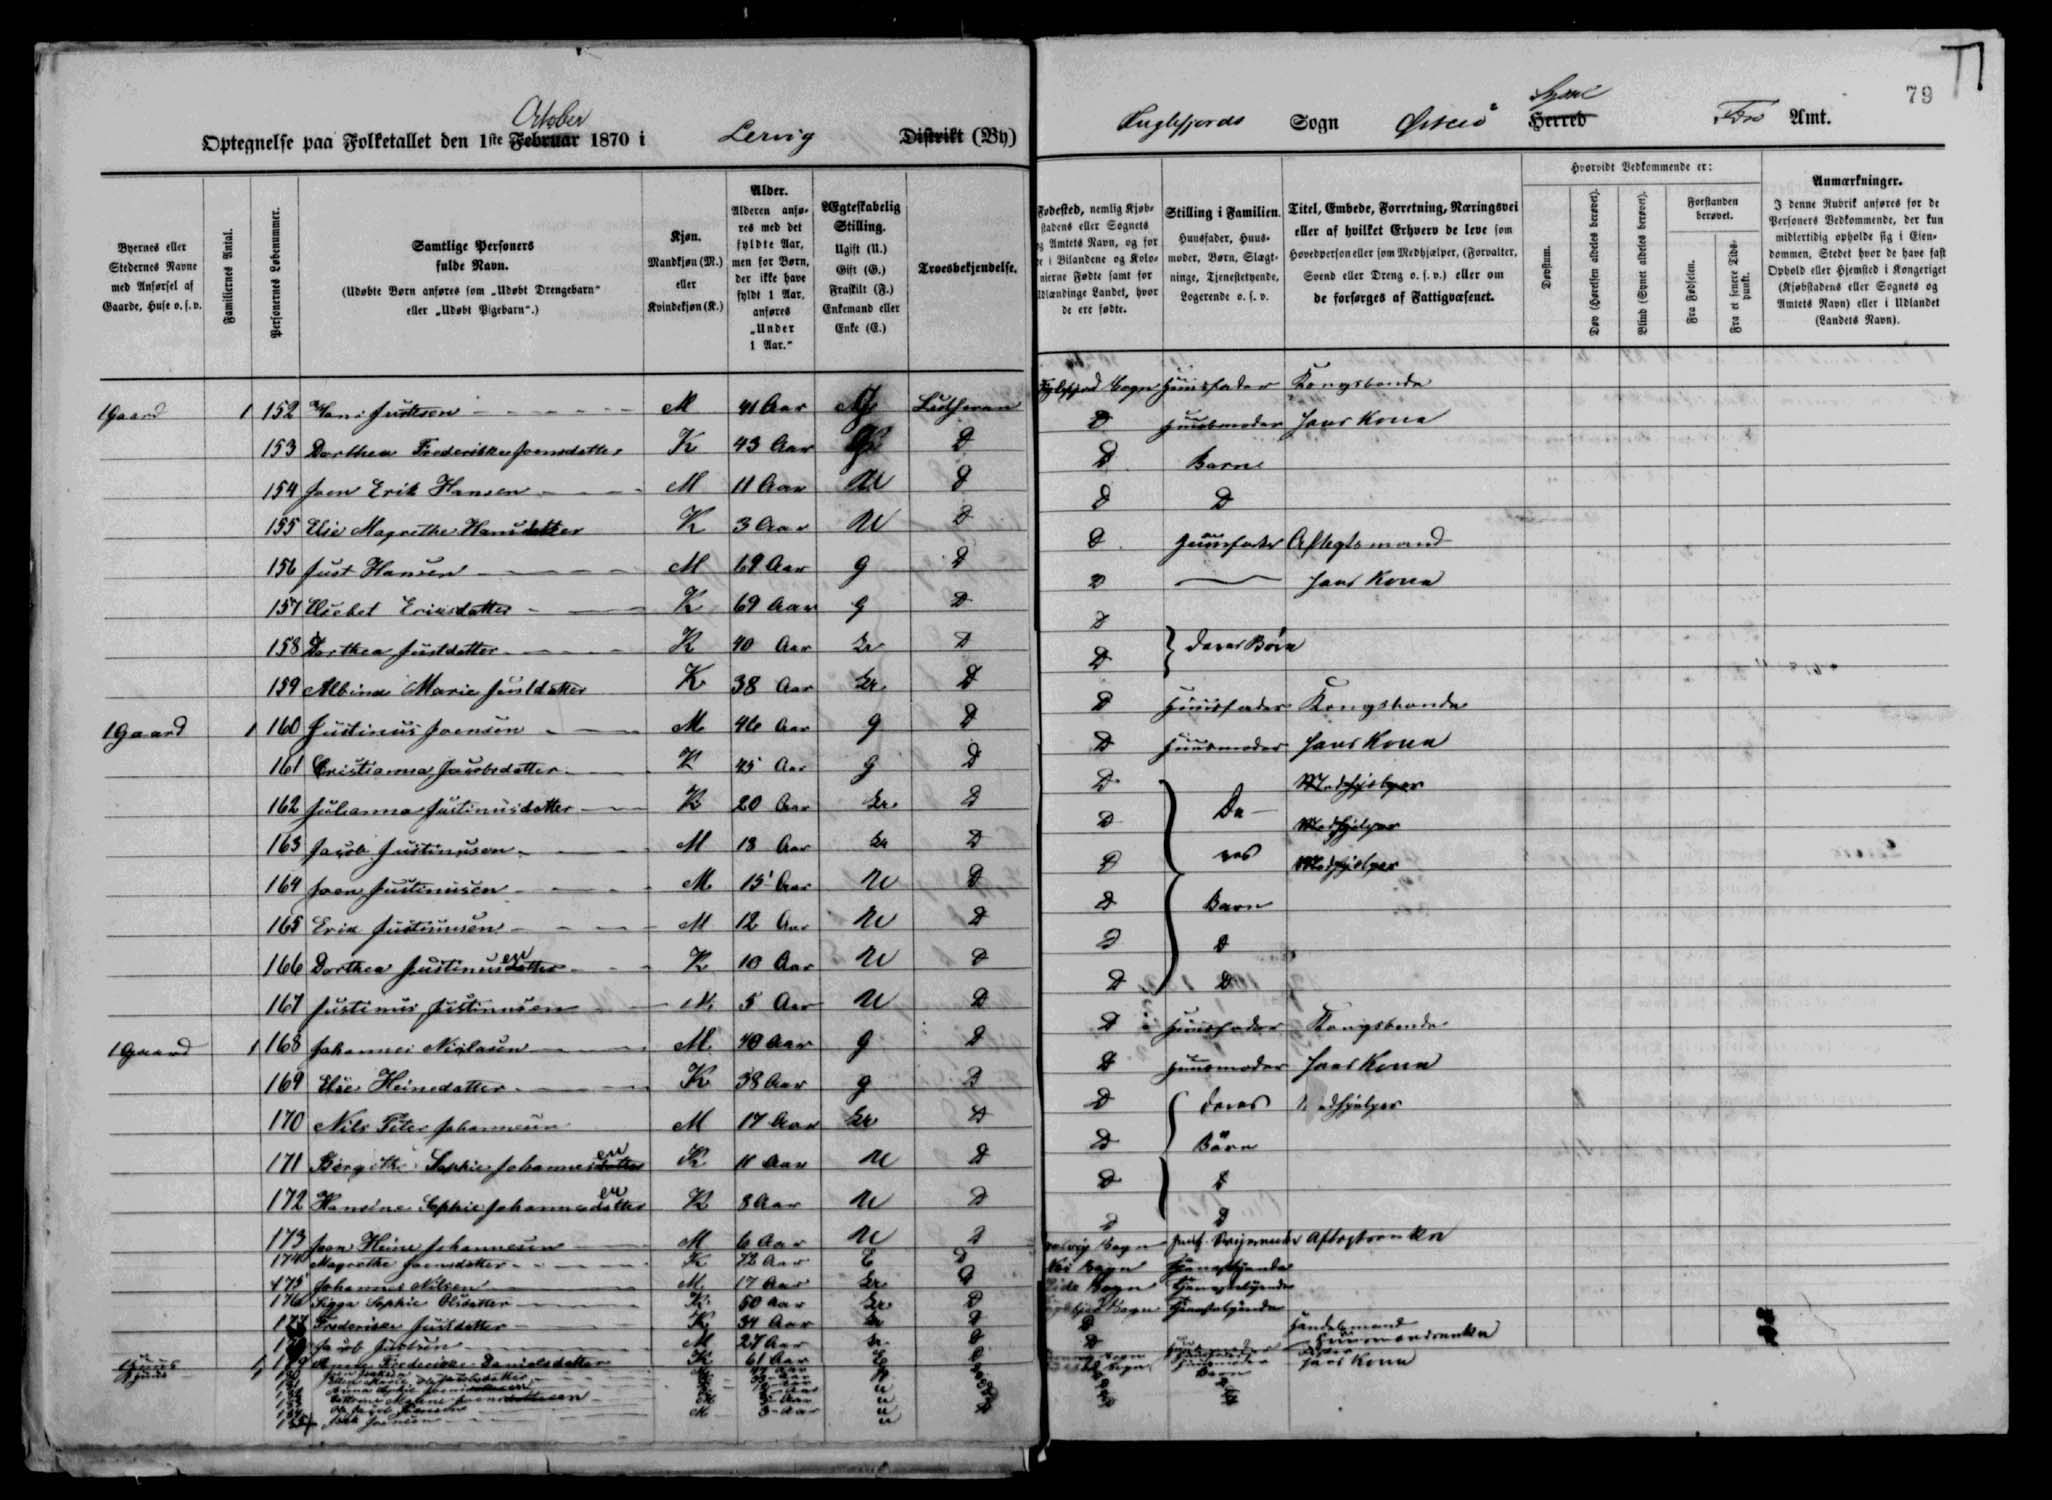 October
Optegnelse paa Folketallet den 1ste Februar 1870 i Lervig Distrikt (By)
Fuglefjords Sogn Østerö Syssel Herred Færö Amt.
79
Byernes eller Stedernes Navne med Anførsel af Gaarde, Huse o. s. v.
Familiernes Antal.
Personernes Løbenummer.
Samtlige Personers fulde Navn.
(Udøbte Børn anføres som „Udøbt Drengebarn“ eller „Udøbt Pigebarn“.)
Kjøn.
Mandkjøn (M.) eller Kvindekjøn (K.)
Alder.
Alderen anføres med det fyldte Aar, men for Børn, der ikke have fyldt 1 Aar, anføres „Under 1 Aar.“
Ægteskabelig Stilling.
Ugift (U.) Gift (G.) Fraskilt (F.) Enkemand eller Enke (E.)
Troesbekjendelse.
Fødested, nemlig Kjøbstadens eller Sognets og Amtets Navn, og for de i Bilandene og Kolonierne Fødte samt for Udlændinge Landet, hvor de ere fødte.
Stilling i Familien.
Huusfader, Huusmoder, Børn, Slægtninge, Tjenestetyende, Logerende o. s. v.
Titel, Embede, Forretning, Næringsvei eller af hvilket Erhverv de leve som Hovedperson eller som Medhjælper, (Forvalter, Svend eller Dreng o. s. v.) eller om de forsørges af Fattigvæsenet.
Hvorvidt Vedkommende er:
Døvstum.
Døv (Hørelsen aldeles berøvet).
Blind (Synet aldeles berøvet).
Forstanden berøvet.
Fra Fødselen.
Fra et senere Tidspunkt.
Anmærkninger.
I denne Rubrik anføres for de Personers Vedkommende, der kun midlertidig opholde sig i Eiendommen, Stedet hvor de have fast Ophold eller Hjemsted i Kongeriget (Kjøbstadens eller Sognets og Amtets Navn) eller i Udlandet (Landets Navn).
1 Gaard 1 152 Hans Justesen M 41 Aar G Lutheran Fuglefjord Sogn Huusfader Kongsbonde
153 Dorthea Frederikke Joensdatter K 43 Aar G D D Huusmoder Hans Kone
154 Joen Erik Hansen M 11 Aar U D D Barn
155 Elsie Magrethe Hansdatter K 3 Aar U D D D
156 Just Hansen M 69 Aar g D D Huusfader Aftægtsmand
157 Elsebet Eriksdatter K 69 Aar g D D Hans Kone
158 Dorthea Justdatter K 40 Aar D D deres Børn
159 Albina Marie Justdatter K 38 Aar D D
1 Gaard 1 160 Justinus Joensen M 46 Aar g D D Huusfader Kongsbonde
161 Cristianna Jacobsdatter K 45 Aar g D D Huusmoder Hans Kone
162 Julianna Justinusdatter K 20 Aar D D De- Medhjelper
163 Jacob Justinusen M 18 Aar D D res Medhjelper
164 Joen Justinusen M 15 Aar U D D Medhjelper
165 Erik Justinusen M 12 Aar U D D Barn
166 Dorthea Justinusdatter en K 10 Aar U D D D
167 Justinus Justinusen M 5 Aar U D D D
1 Gaard 1 168 Johannes Niclasen M 40 Aar g D D Huusfader Kongsbonde
169 Elsie Heinedatter K 38 Aar g D D Huusmoder Hans Kone
170 Nils Peter Johannesen M 17 Aar D D deres Medhjelper
171 Birgithe Sophie Johannesdatter en K 11 Aar U D D Børn
172 Hansine Sophie Johannesdatter en K 8 Aar U D D D
173 Joen Heine Johannesen M 6 Aar U D D D
174 Magrethe Joensdatter K 72 Aar E D Sogn Aftægtsenke
175 Johannes Nilsen M 17 Aar D Sogn Tjenestetyende
176 Sigga Sophie Olsdatter K 50 Aar D Eide Sogn Tjenestetyende
177 Frederikke Justdatter K 34 Aar D Sogn Tjenestetyende
Jacob M 27 Aar D D Handelsmand
1 Huus 1 179 Anne Frederikke Danielsdatter K 61 Aar E D D Huusmandsenke
Sogn Huusmoder Hans Kone
Barn